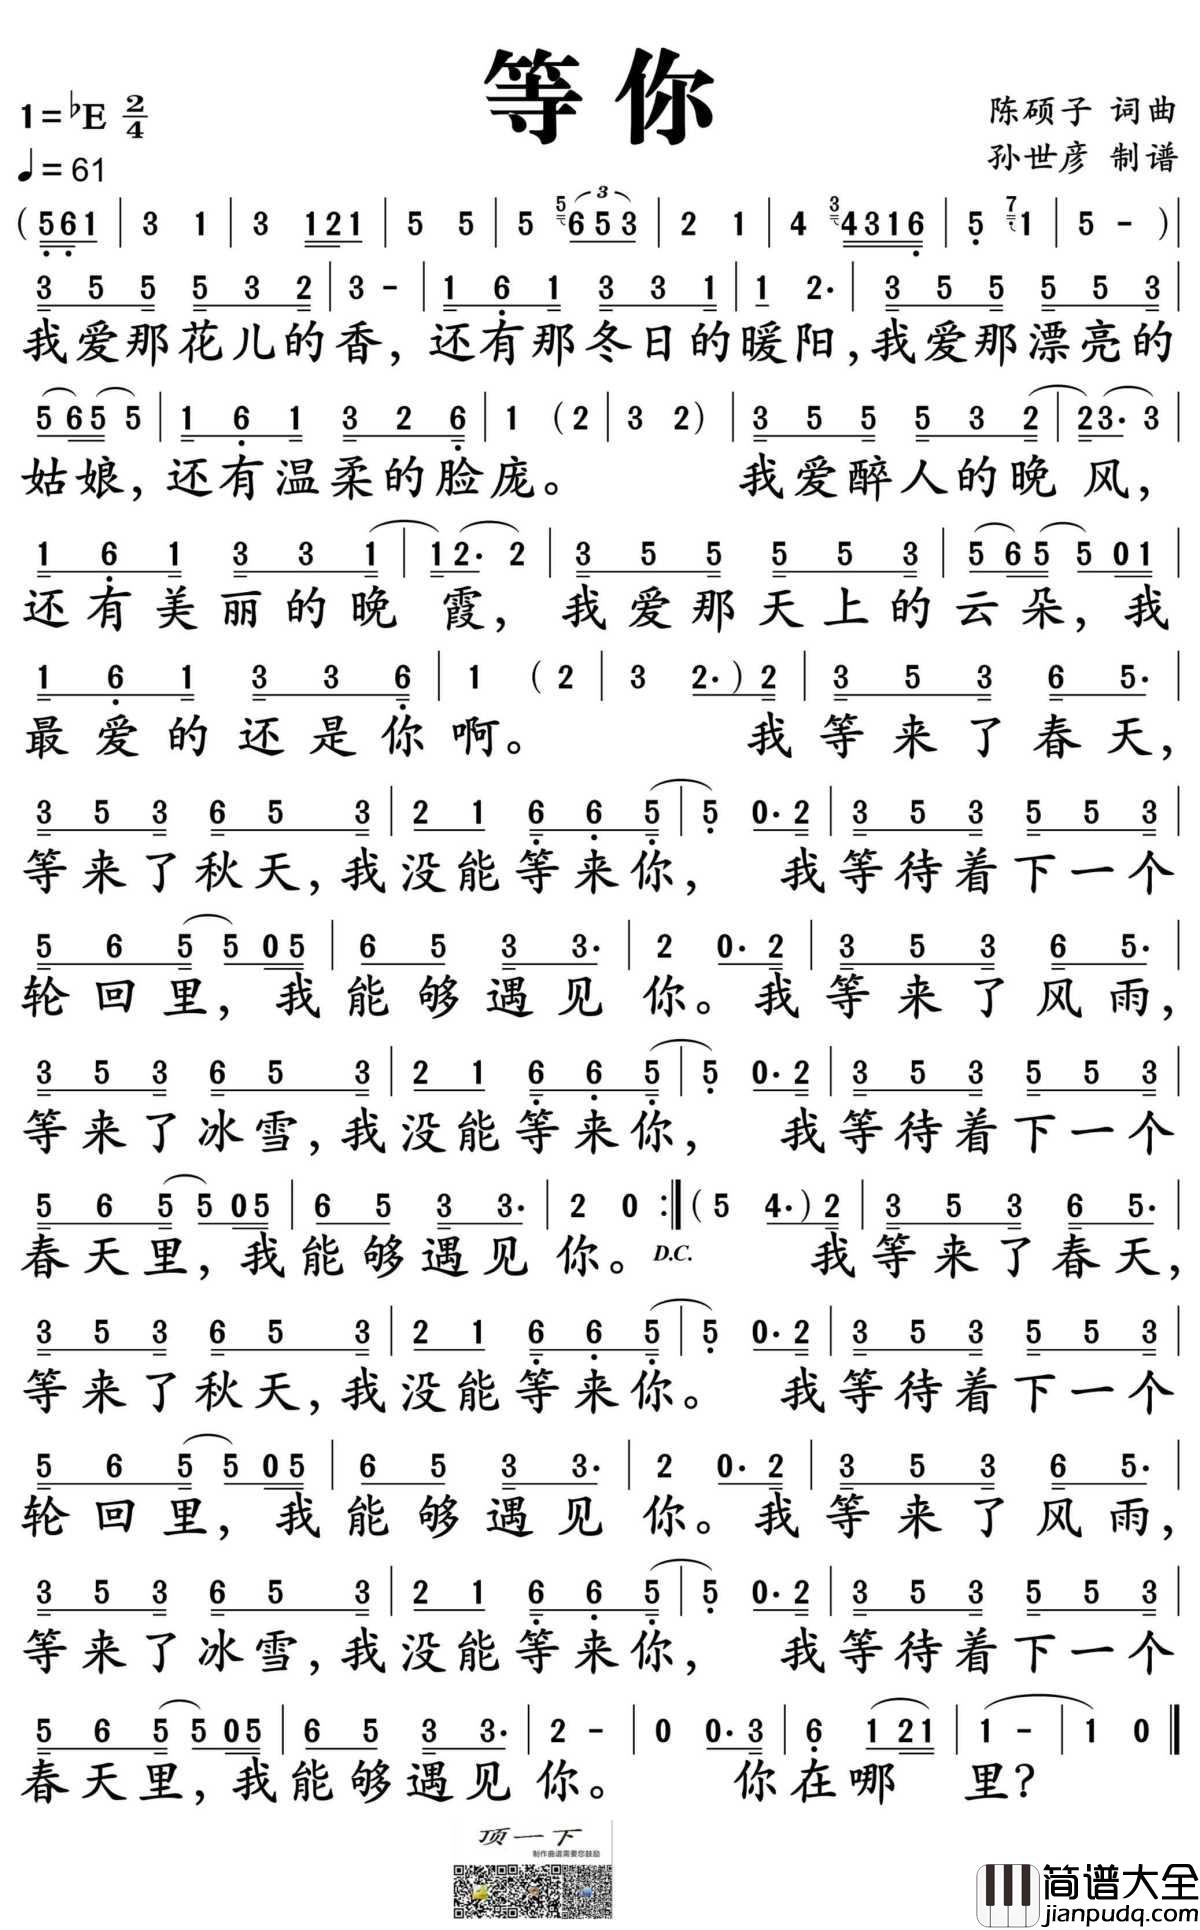 等你
1=♭E 2/4
陈硕子 词曲
♩=61
孙世彦 制谱
(561 | 3 1 | 3 121 | 5 5 | 5 5 653 3 | 2 1 | 4 3 4316 | 5 7 1 | 5 - ) |
3 5 5 5 3 2 | 3 - | 1 6 1 3 3 1 | 1 2· | 3 5 5 5 5 3 |
我爱那花儿的香,还有那冬日的暖阳,我爱那漂亮的
5 65 5 | 1 6 1 3 2 6 | 1 (2 | 3 2) | 3 5 5 5 3 2 | 23· 3 |
姑娘,还有温柔的脸庞。 我爱醉人的晚风,
1 6 1 3 3 1 | 12· 2 | 3 5 5 5 5 3 | 5 65 5 01 |
还有美丽的晚霞,我爱那天上的云朵,我
1 6 1 3 3 6 | 1 (2 | 3 2·) 2 | 3 5 3 6 5· |
最爱的还是你啊。 我等来了春天,
3 5 3 6 5 3 | 2 1 6 6 5 | 5 0·2 | 3 5 3 5 5 3 |
等来了秋天,我没能等来你, 我等待着下一个
5 6 5 5 05 | 6 5 3 3· | 2 0·2 | 3 5 3 6 5· |
轮回里,我能够遇见你。我等来了风雨,
3 5 3 6 5 3 | 2 1 6 6 5 | 5 0·2 | 3 5 3 5 5 3 |
等来了冰雪,我没能等来你, 我等待着下一个
5 6 5 5 05 | 6 5 3 3· | 2 0 :| (5 4·) 2 | 3 5 3 6 5· |
春天里,我能够遇见你。 D.C. 我等来了春天,
3 5 3 6 5 3 | 2 1 6 6 5 | 5 0·2 | 3 5 3 5 5 3 |
等来了秋天,我没能等来你。 我等待着下一个
5 6 5 5 05 | 6 5 3 3· | 2 0·2 | 3 5 3 6 5· |
轮回里,我能够遇见你。我等来了风雨,
3 5 3 6 5 3 | 2 1 6 6 5 | 5 0·2 | 3 5 3 5 5 3 |
等来了冰雪,我没能等来你, 我等待着下一个
5 6 5 5 05 | 6 5 3 3· | 2 - | 0 0·3 | 6 1 21 | 1 - | 1 0 ||
春天里,我能够遇见你。 你在哪里?
顶一下
制作曲谱需要您鼓励
简谱大全
jianpudq.com